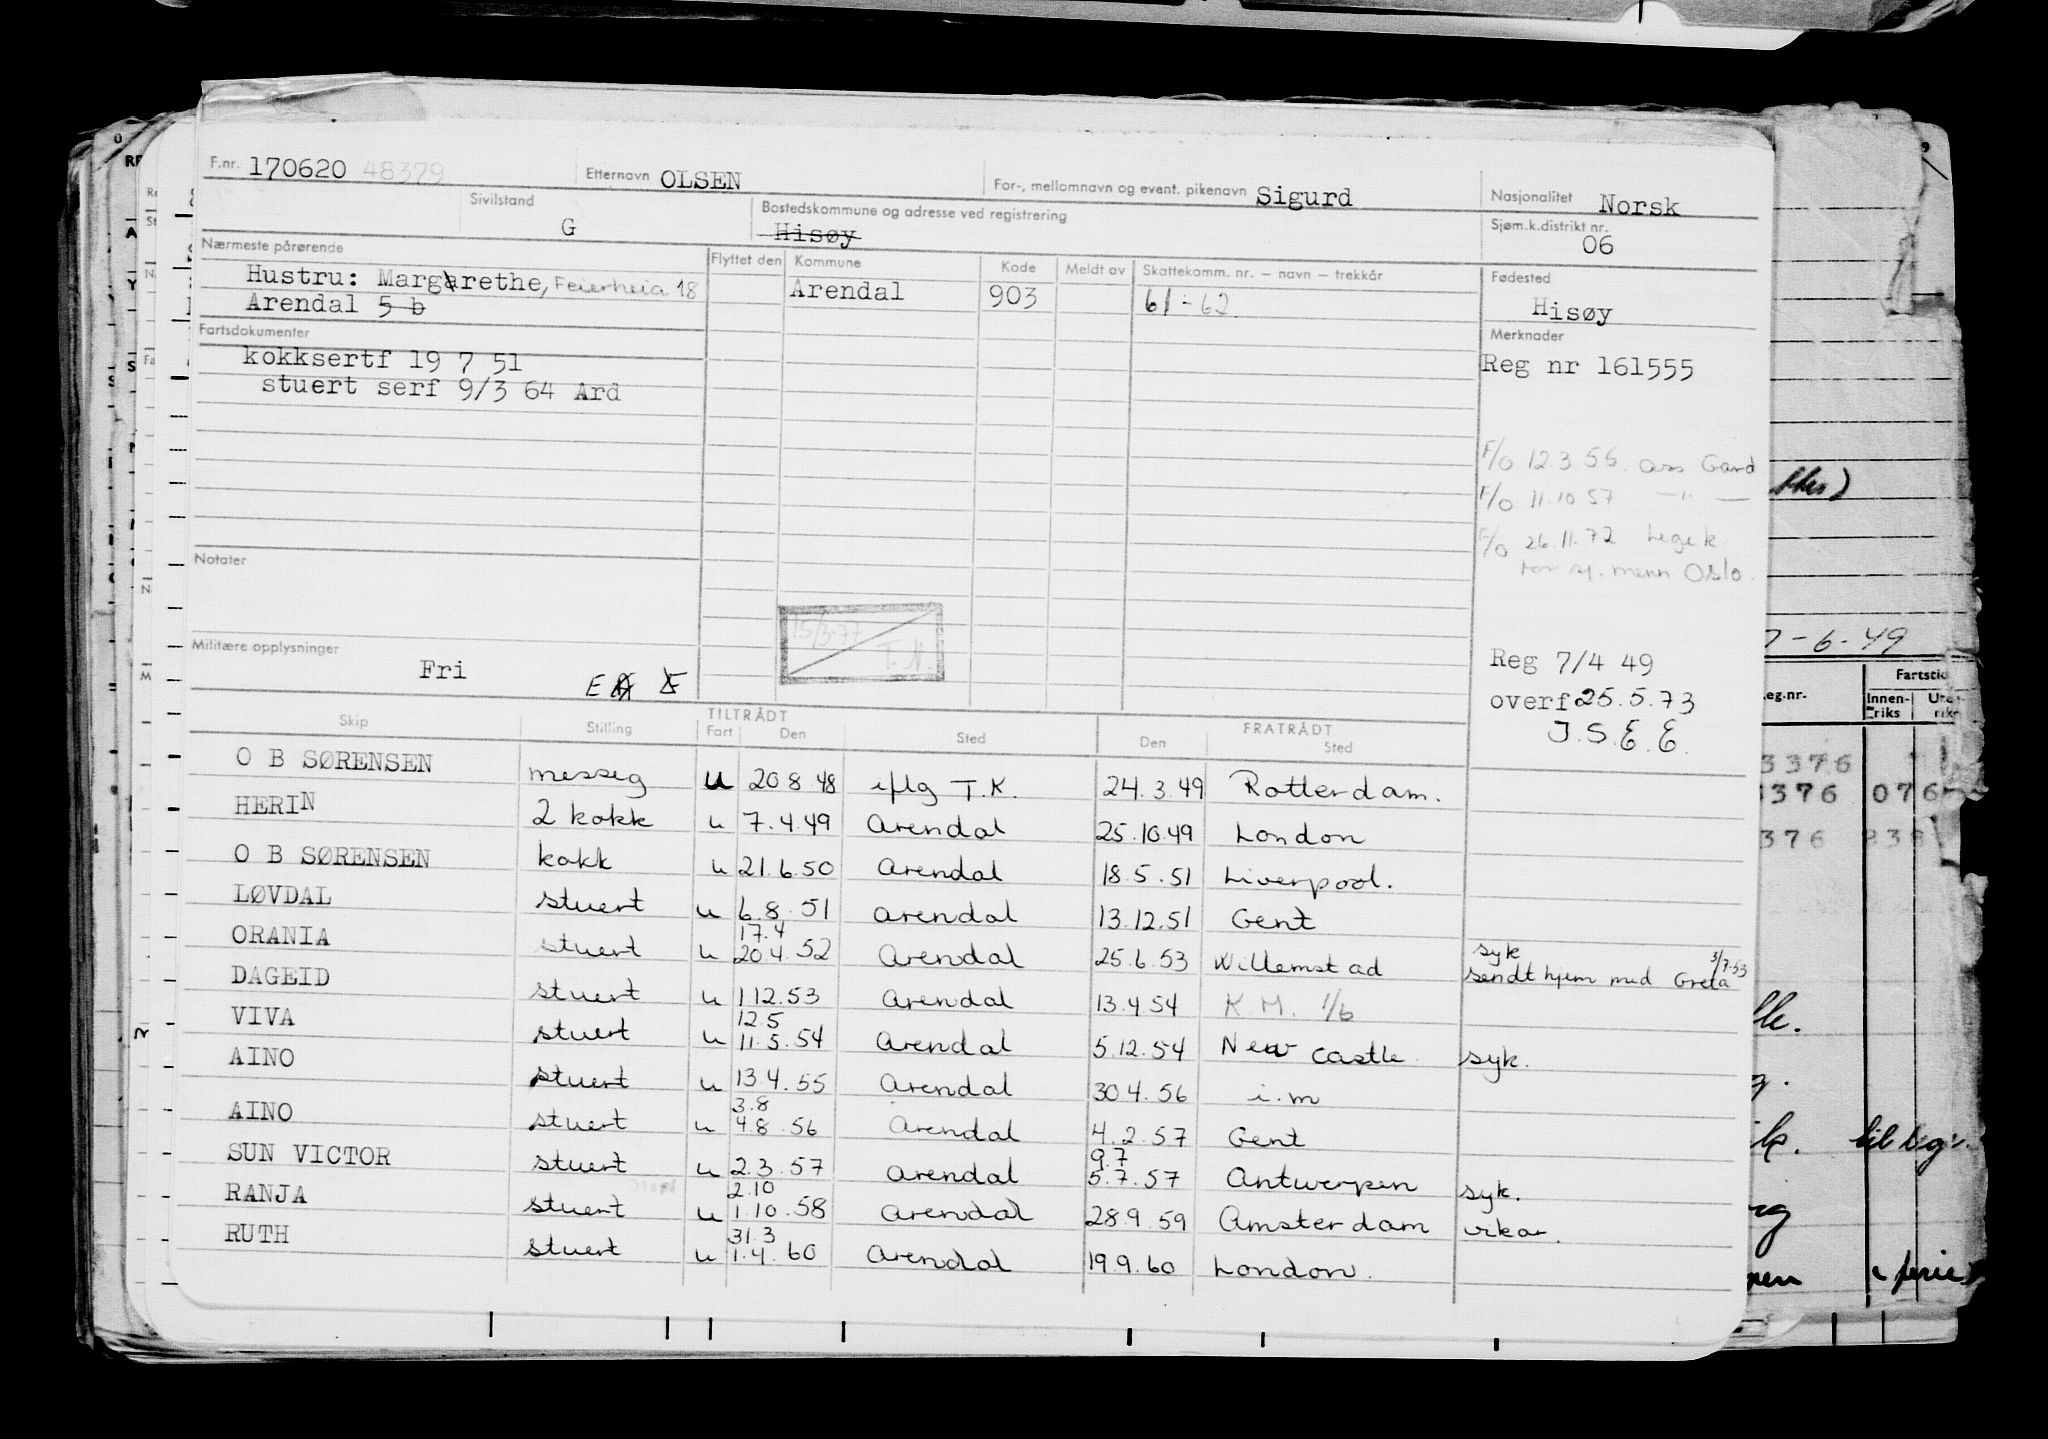 F.nr. 170620 48379 Etternavn OLSEN For-, mellomnavn og event. pikenavn Sigurd Nasjonalitet Norsk
Sivilstand G Bostedskommune og adresse ved registrering Hisøy Sjøm.k.distrikt nr. 06
Nærmeste pårørende Flyttet den Kommune Kode Meldt av Skattekomm. nr. – navn – trekkår Fødested
Hustru: Margarethe, Feierheia 18 Arendal 903 61-62 Hisøy
Arendal 5 b
Fartsdokumenter Merknader
kokksertf 19 7 51 Reg nr 161555
stuert serf 9/3 64 Ard
F/o 12.3 56. ass Gard
F/o 11.10 57 — " —
F/o 26.11.72 Legek.
for sj.menn Oslo.
Notater
15/3-77
T.N.
Militære opplysninger
Fri
Reg 7/4 49
overf 25.5.73
J.S.E.E.
Skip Stilling TILTRÅDT Fart Den Sted FRATRÅDT Den Sted
O B SØRENSEN messeg u 20 8 48 iflg T.K. 24.3.49 Rotterdam.
HERIN 2 kokk u 7.4.49 Arendal 25.10.49 London
O B SØRENSEN kokk u 21.6.50 Arendal 18.5.51 Liverpool.
LØVDAL stuert u 6.8.51 Arendal 13.12.51 Gent
ORANIA stuert u 17.4 20.4.52 Arendal 25.6.53 Willemstad syk sendt hjem med Greta 3/7.53
DAGEID stuert u 1.12.53 Arendal 13.4.54 K.M. 1/6
VIVA stuert u 12.5 11.5.54 Arendal 5.12.54 New castle. syk.
AINO stuert u 13.4.55 Arendal 30 4.56 i.m
AINO stuert u 3.8 4.8.56 Arendal 4.2.57 Gent
SUN VICTOR stuert u 2.3.57 Arendal 9.7 5.7.57 Antwerpen syk.
RANJA stuert u 2.10 1.10.58 Arendal 28.9.59 Amsterdam vikar.
RUTH stuert u 31.3 1.4.60 Arendal 19.9.60 London.
7-6-49
Fartstid
eg.nr. Innen-riks
3376
3376 076
376 838
til tog
i ferie